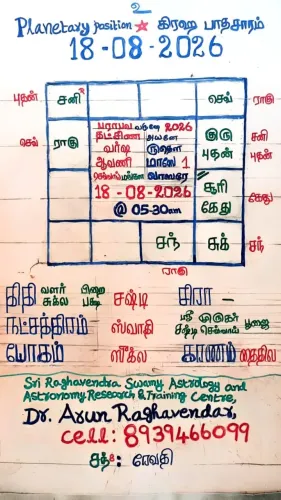 2
Planetary position ★ கிரஹ பாதசாரம்
18-08-2026
புதன் சனி செவ் ராகு
பராபவ வருஷ 2026
செவ் ராகு தட்சிண அயனே குரு சனி
வர்ஷ ருதௌ புதன் புதன்
ஆவணி மாஸே 1
செவ்வாய் வாஸரே சூரி
18-08-2026 கேது கேது
@ 05-30am
சந் சுக் சந்
ராகு
திதி வளர் பிறை சஷ்டி சிரா -
சுக்ல பக்ஷ
நட்சத்திரம் ஸ்வாதி ஸ்ரீ முருகர் பூஜை
சஷ்டி செவ்வாய்
யோகம் சுக்ல கரணம் தைதில
Sri Raghavendra Swamy Astrology and
Astronomy Research & Training Centre,
Dr. Arun Raghavendar,
cell: 8939466099